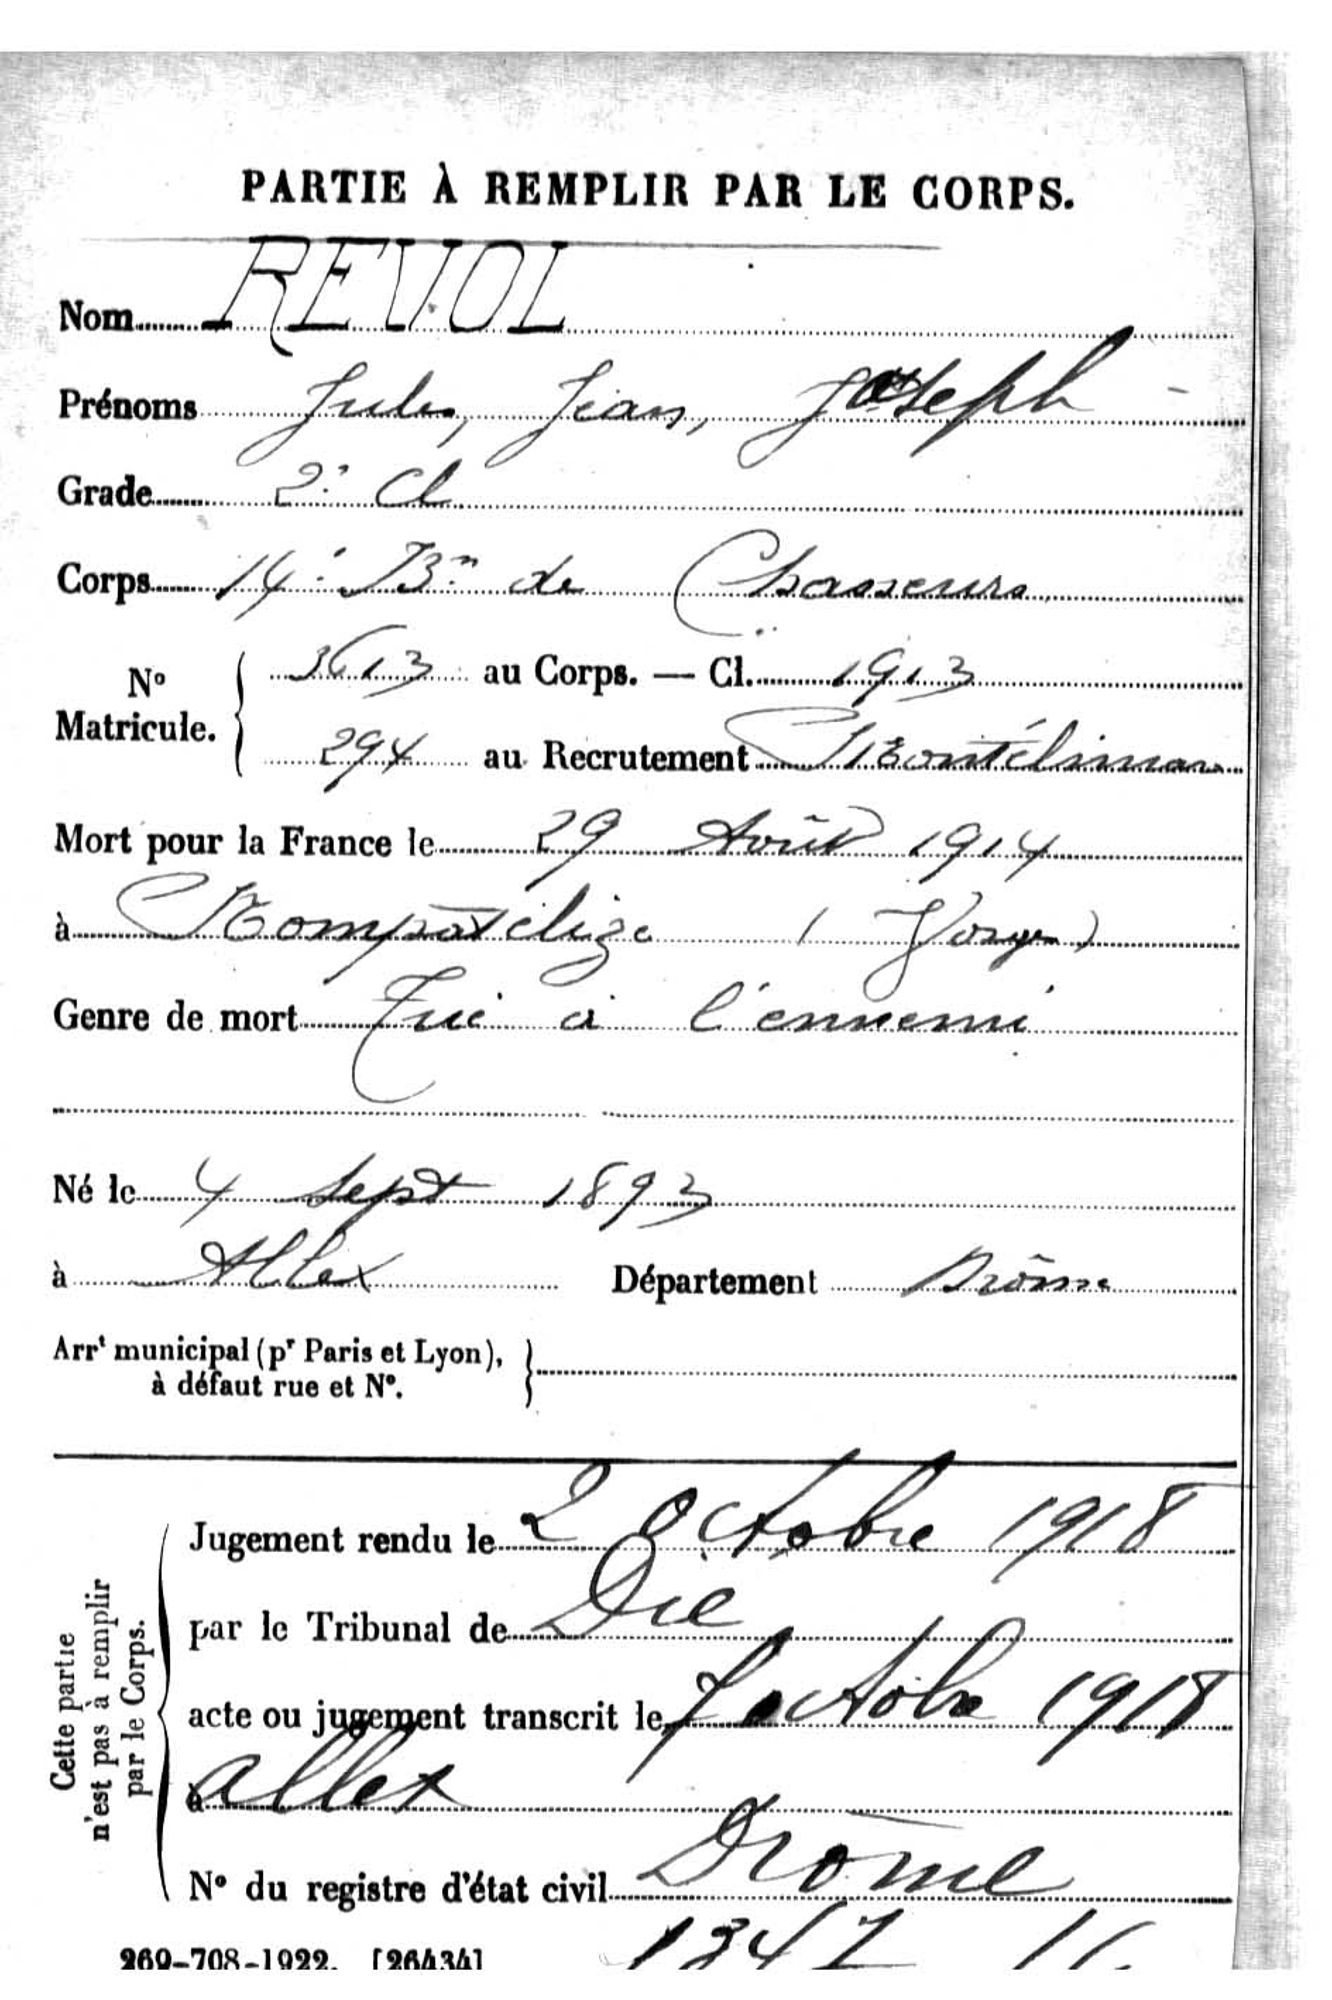 PARTIE À REMPLIR PAR LE CORPS.
Nom REVOL
Prénoms Jules, Jean, Joseph -
Grade 2e Cl
Corps 14e Bon de Chasseurs
No Matricule. { 3613 au Corps. — Cl. 1913
294 au Recrutement Montélimar
Mort pour la France le 29 Août 1914
à Nompatelize (Vosges)
Genre de mort Tué à l'ennemi
Né le 4 Sept 1893
à Allex Département Drôme
Arrt municipal (pr Paris et Lyon),
à défaut rue et No.
Cette partie
n'est pas à remplir
par le Corps.
Jugement rendu le 2 Octobre 1918
par le Tribunal de Die
acte ou jugement transcrit le 7 octobre 1918
à allex
Drôme
No du registre d'état civil
269-708-1922. [26434]